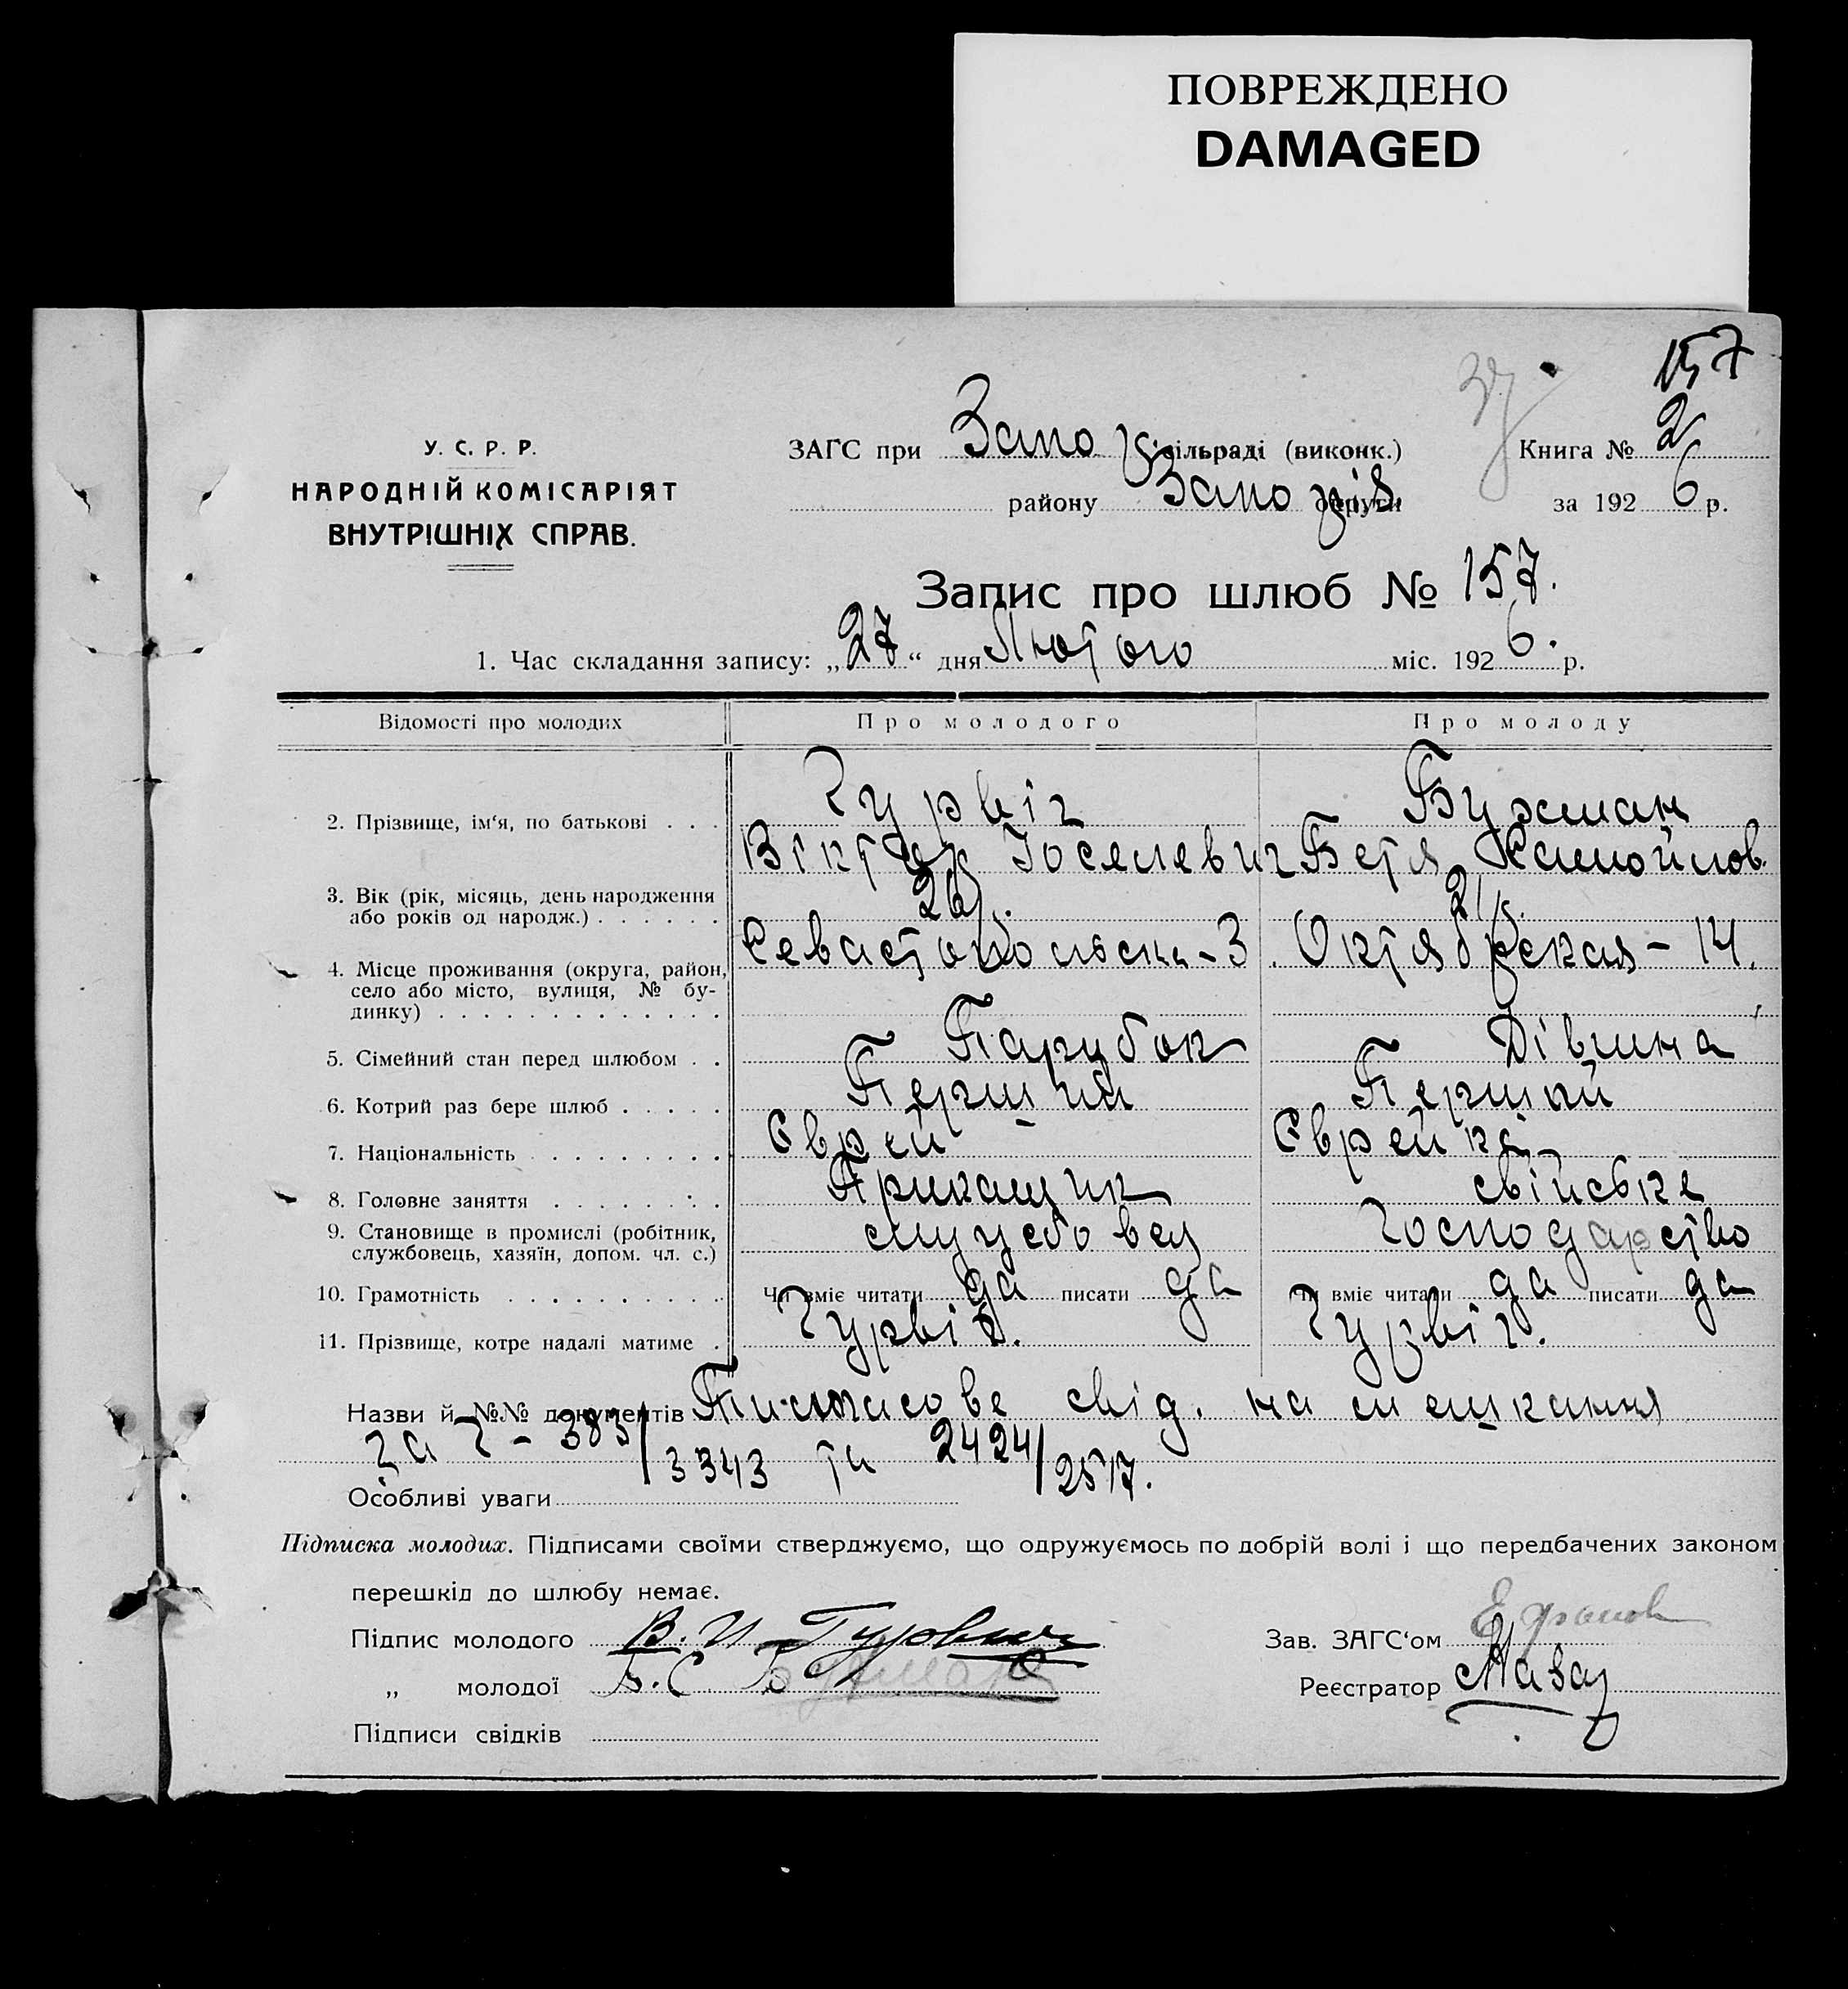 ПОВРЕЖДЕНО
DAMAGED
157
У. С. Р. Р.
НАРОДНІЙ КОМІСАРІЯТ
ВНУТРІШНІХ СПРАВ.
ЗАГС при Запор сільраді (виконк.) Книга № 2
району Запоріз. округи за 1926 р.
Запис про шлюб № 157.
1. Час складання запису: „27“ дня Лютого міс. 1926. р.
Відомості про молодих Про молодого Про молоду
2. Прізвище, ім‘я, по батькові . . . Гурвіч Бурман
Віктор Йоселевич Бетя Самойлов.
3. Вік (рік, місяць, день народження
або років од народж.) . . . . . . 26р. 21р.
4. Місце проживання (округа, район,
село або місто, вулиця, № бу-
динку) . . . . . . . . . . . . . Севастопольська-3. Октябрская-14.
5. Сімейний стан перед шлюбом . . Парубок Дівчина
6. Котрий раз бере шлюб . . . . . Перший Перший
7. Національність . . . . . . . . . Єврей Єврейка
8. Головне заняття . . . . . . . . Прикащик свійське
9. Становище в промислі (робітник,
службовець, хазяїн, допом. чл. с.) службовец господарство
10. Грамотність . . . . . . . . . . Чи вміє читати да писати да Чи вміє читати да писати да
11. Прізвище, котре надалі матиме . Гурвіч. Гурвіч.
Назви й №№ документів Тимчасове свід. на мешкання
за № - 383/3343 та 2424/2517.
Особливі уваги
Підписка молодих. Підписами своїми стверджуємо, що одружуємось по добрій волі і що передбачених законом
перешкід до шлюбу немає.
Підпис молодого В. И Гурвич Зав. ЗАГС‘ом
„ молодої Б. С Бурман Реєстратор
Підписи свідків